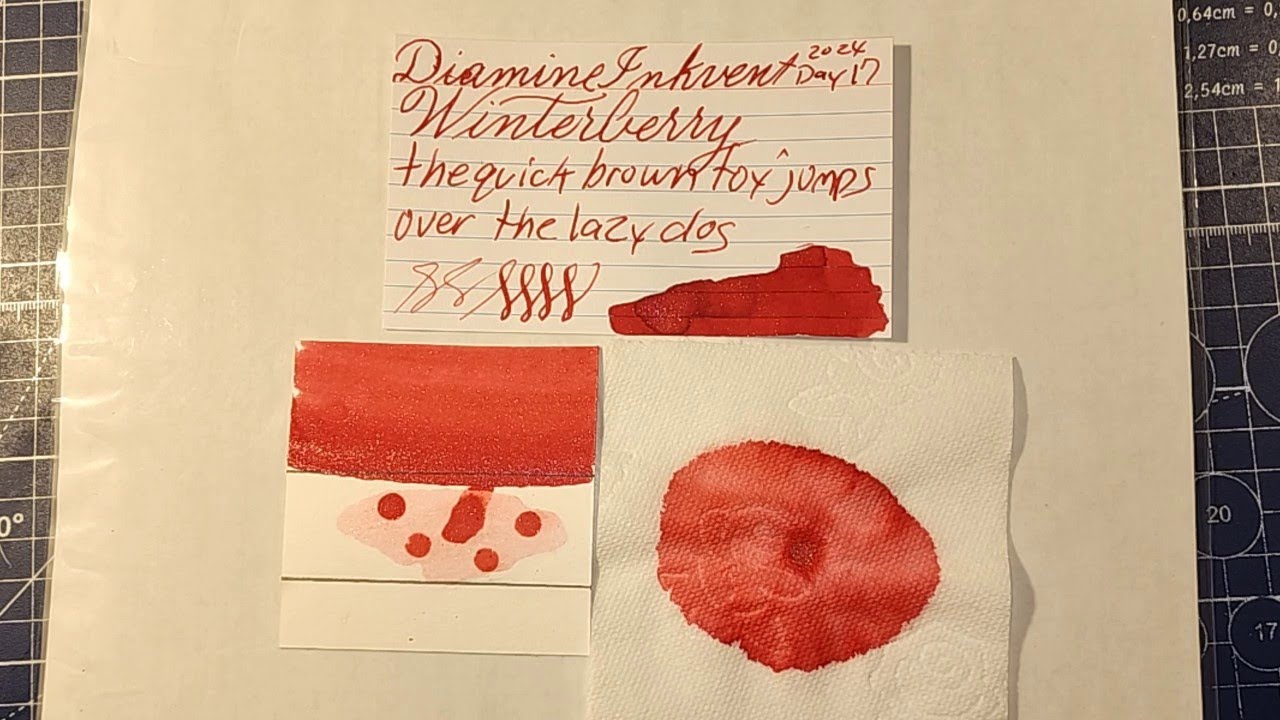 Diamine Inkvent 2024 Day 17
Winterberry
the quick brown fox jumps
over the lazy dog
0,64cm = 0,
1,27cm = 0
2,54cm =
0°
20
17